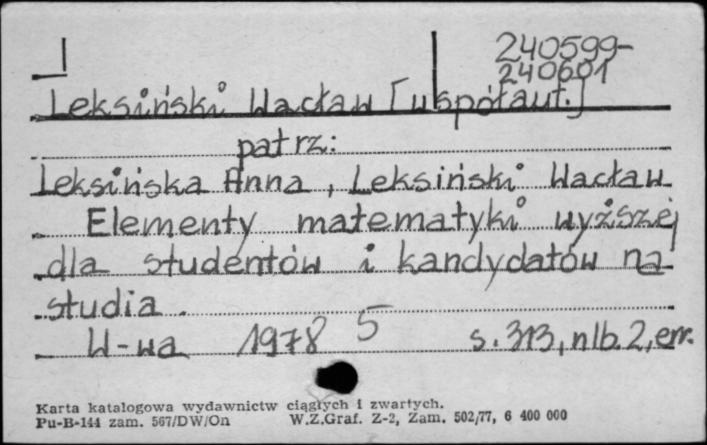 240599-
240601
Leksiński Wacław [współaut.]
patrz:
Leksińska Anna, Leksiński Wacław
Elementy matematyki wyższej
dla studentów i kandydatów na
studia.
W-wa 1978 5 s. 313, nlb. 2, err.
Karta katalogowa wydawnictw ciągłych i zwartych.
Pu-B-144 zam. 567/DW/On W.Z.Graf. Z-2, Zam. 502/77, 6 400 000